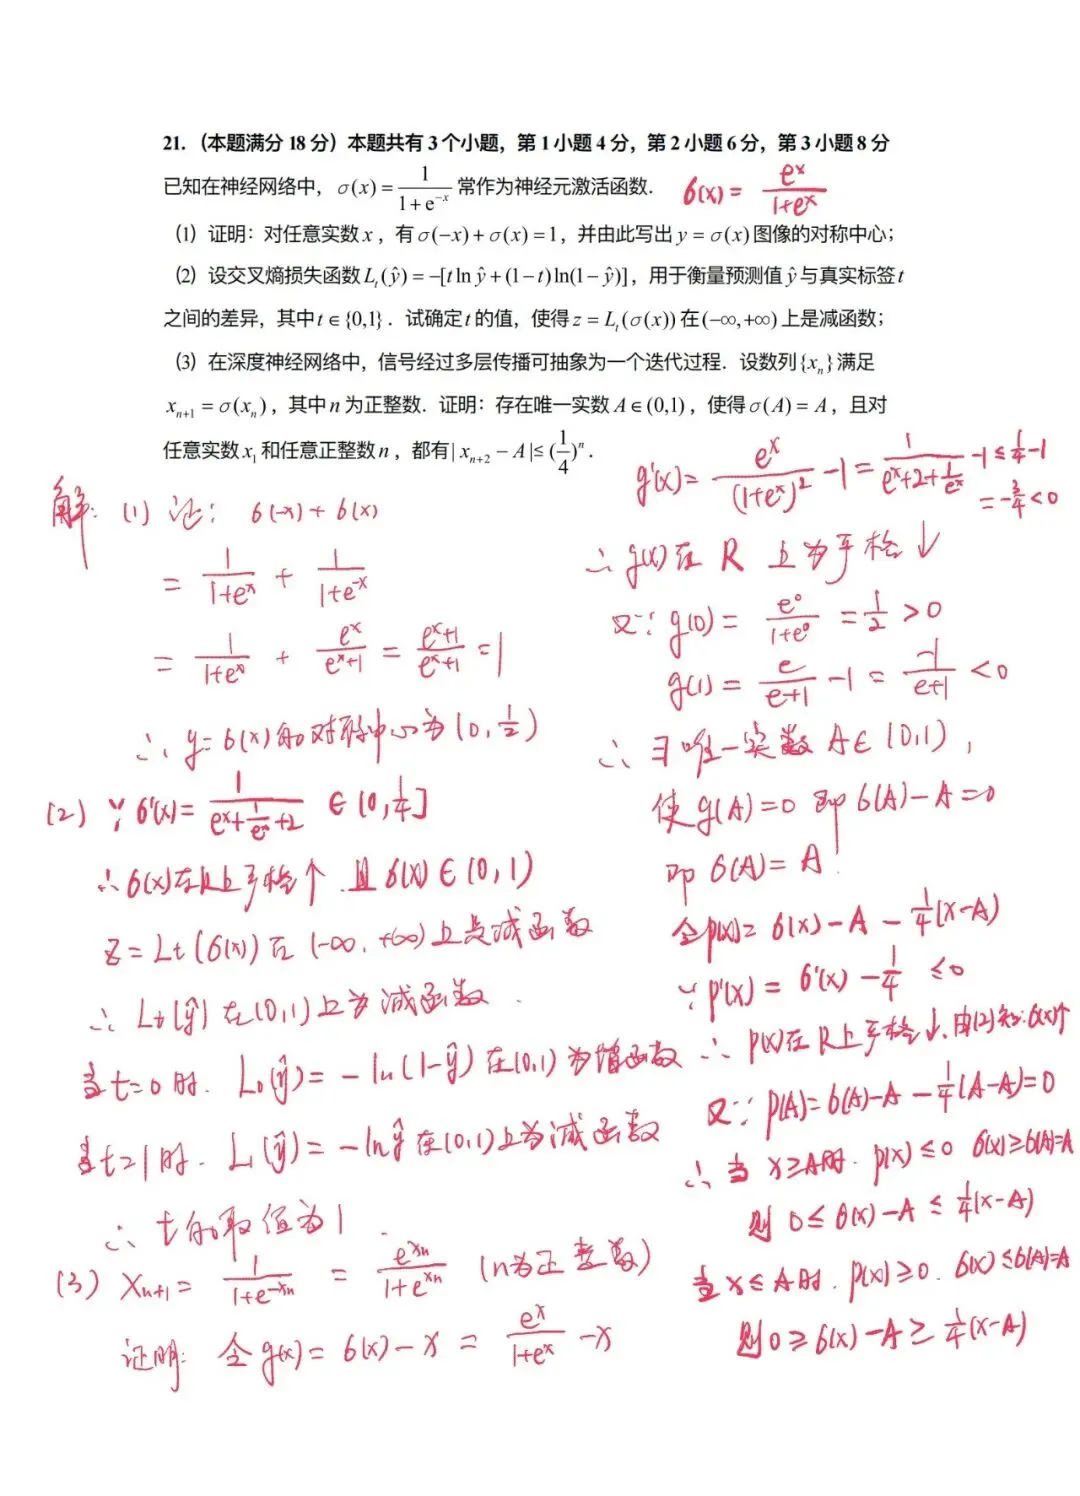 21. （本题满分 18 分）本题共有 3 个小题，第 1 小题 4 分，第 2 小题 6 分，第 3 小题 8 分
已知在神经网络中，σ(x) = 1/(1+e^{-x}) 常作为神经元激活函数. σ(x) = e^x/(1+e^x)
（1）证明：对任意实数 x ，有 σ(−x)+σ(x)=1，并由此写出 y=σ(x) 图像的对称中心；
（2）设交叉熵损失函数 L_t(ŷ)=−[t ln ŷ+(1−t)ln(1−ŷ)]，用于衡量预测值 ŷ 与真实标签 t
之间的差异，其中 t∈{0,1}．试确定 t 的值，使得 z=L_t(σ(x)) 在 (−∞,+∞) 上是减函数；
（3）在深度神经网络中，信号经过多层传播可抽象为一个迭代过程．设数列{x_n}满足
x_{n+1}=σ(x_n)，其中 n 为正整数．证明：存在唯一实数 A∈(0,1)，使得 σ(A)=A，且对
任意实数 x_1 和任意正整数 n，都有|x_{n+2}−A|≤(1/4)^n．
解：(1) 证：σ(-x)+σ(x)
= 1/(1+e^x) + 1/(1+e^{-x})
= 1/(1+e^x) + e^x/(e^x+1) = (e^x+1)/(e^x+1) = 1
∴ y=σ(x) 的对称中心为 (0, 1/2)
(2) ∵ σ'(x)= 1/(e^x+1/e^x+2) ∈ (0, 1/4]
∴ σ(x)在R上严格↑ 且 σ(x)∈(0,1)
z=Lt(σ(x))在(-∞,+∞)上是减函数
∴ Lt(ŷ)在(0,1)上为减函数.
当t=0时. L₀(ŷ)= -ln(1-ŷ)在(0,1)为增函数
当t=1时. L₁(ŷ)= -lnŷ在(0,1)上为减函数
∴ t的取值为1.
(3) X_{n+1}= 1/(1+e^{-x_n}) = e^{x_n}/(1+e^{x_n}) (n为正整数)
证明: 令g(x)=σ(x)-x = e^x/(1+e^x) -x
g'(x)= e^x/(1+e^x)² -1 = 1/(e^x+2+1/e^x) -1 ≤ 1/4 -1
= -3/4 <0
∴ g(x)在 R 上为严格↓
又∵ g(0)= e⁰/(1+e⁰) = 1/2 >0
g(1)= e/(e+1) -1 = -1/(e+1) <0
∴ ∃唯一实数 A∈(0,1),
使g(A)=0 即σ(A)-A=0
即 σ(A)=A.
令p(x)= σ(x)-A - 1/4(x-A)
∵ p'(x)= σ'(x) - 1/4 ≤0
∴ p(x)在R上严格↓, 由(2)知: σ(x)↑
又∵ p(A)=σ(A)-A - 1/4(A-A)=0
∴ 当 x≥A时. p(x)≤0 σ(x)≥σ(A)=A
则 0≤σ(x)-A ≤ 1/4(x-A)
当x≤A时. p(x)≥0. σ(x)≤σ(A)=A
则0≥σ(x)-A≥ 1/4(x-A)